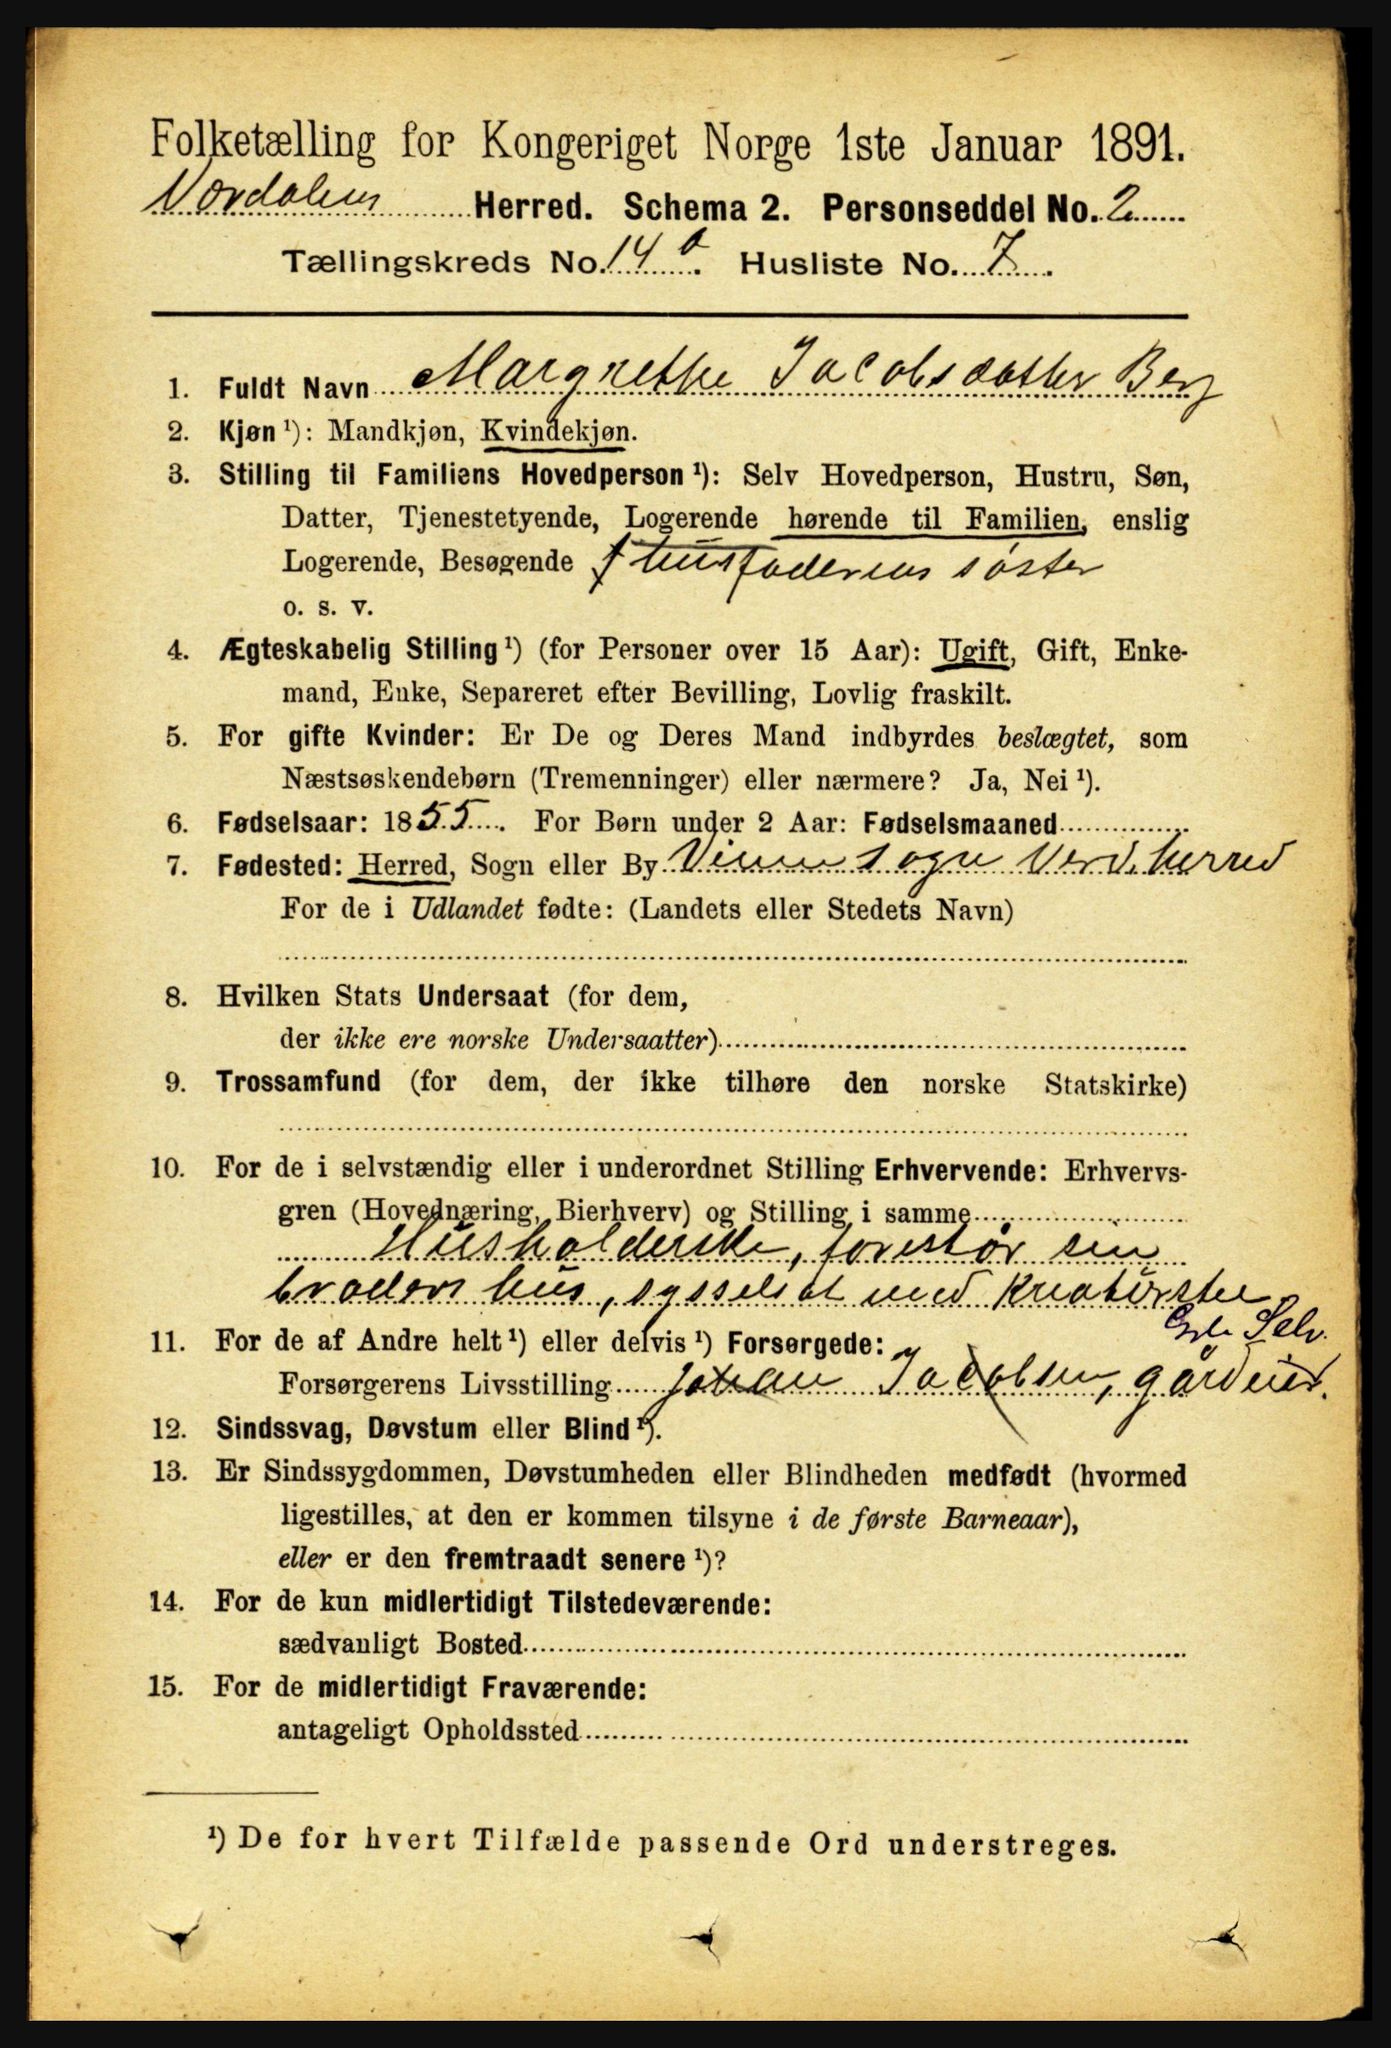 Folketælling for Kongeriget Norge 1ste Januar 1891.
Værdalens Herred. Schema 2. Personseddel No. 2
Tællingskreds No. 14 a. Husliste No. 7.
1. Fuldt Navn Margrethe Jacobsdatter Berg
2. Kjøn ¹): Mandkjøn, Kvindekjøn.
3. Stilling til Familiens Hovedperson ¹): Selv Hovedperson, Hustru, Søn,
Datter, Tjenestetyende, Logerende hørende til Familien, enslig
Logerende, Besøgende f husfaderens søster
o. s. v.
4. Ægteskabelig Stilling ¹) (for Personer over 15 Aar): Ugift, Gift, Enke-
mand, Enke, Separeret efter Bevilling, Lovlig fraskilt.
5. For gifte Kvinder: Er De og Deres Mand indbyrdes beslægtet, som
Næstsøskendebørn (Tremenninger) eller nærmere? Ja, Nei ¹).
6. Fødselsaar: 1855. For Børn under 2 Aar: Fødselsmaaned
7. Fødested: Herred, Sogn eller By Vinne sogn Verd. herred
For de i Udlandet fødte: (Landets eller Stedets Navn)
8. Hvilken Stats Undersaat (for dem,
der ikke ere norske Undersaatter)
9. Trossamfund (for dem, der ikke tilhøre den norske Statskirke)
10. For de i selvstændig eller i underordnet Stilling Erhvervende: Erhvervs-
gren (Hovednæring, Bierhverv) og Stilling i samme
Husholderske, forestår sin
broders hus, sysselsat med kreaturstel
Selv.
11. For de af Andre helt ¹) eller delvis ¹) Forsørgede:
Forsørgerens Livsstilling Johan Jacobsen, gårdeier.
12. Sindssvag, Døvstum eller Blind ¹).
13. Er Sindssygdommen, Døvstumheden eller Blindheden medfødt (hvormed
ligestilles, at den er kommen tilsyne i de første Barneaar),
eller er den fremtraadt senere ¹)?
14. For de kun midlertidigt Tilstedeværende:
sædvanligt Bosted
15. For de midlertidigt Fraværende:
antageligt Opholdssted
¹) De for hvert Tilfælde passende Ord understreges.